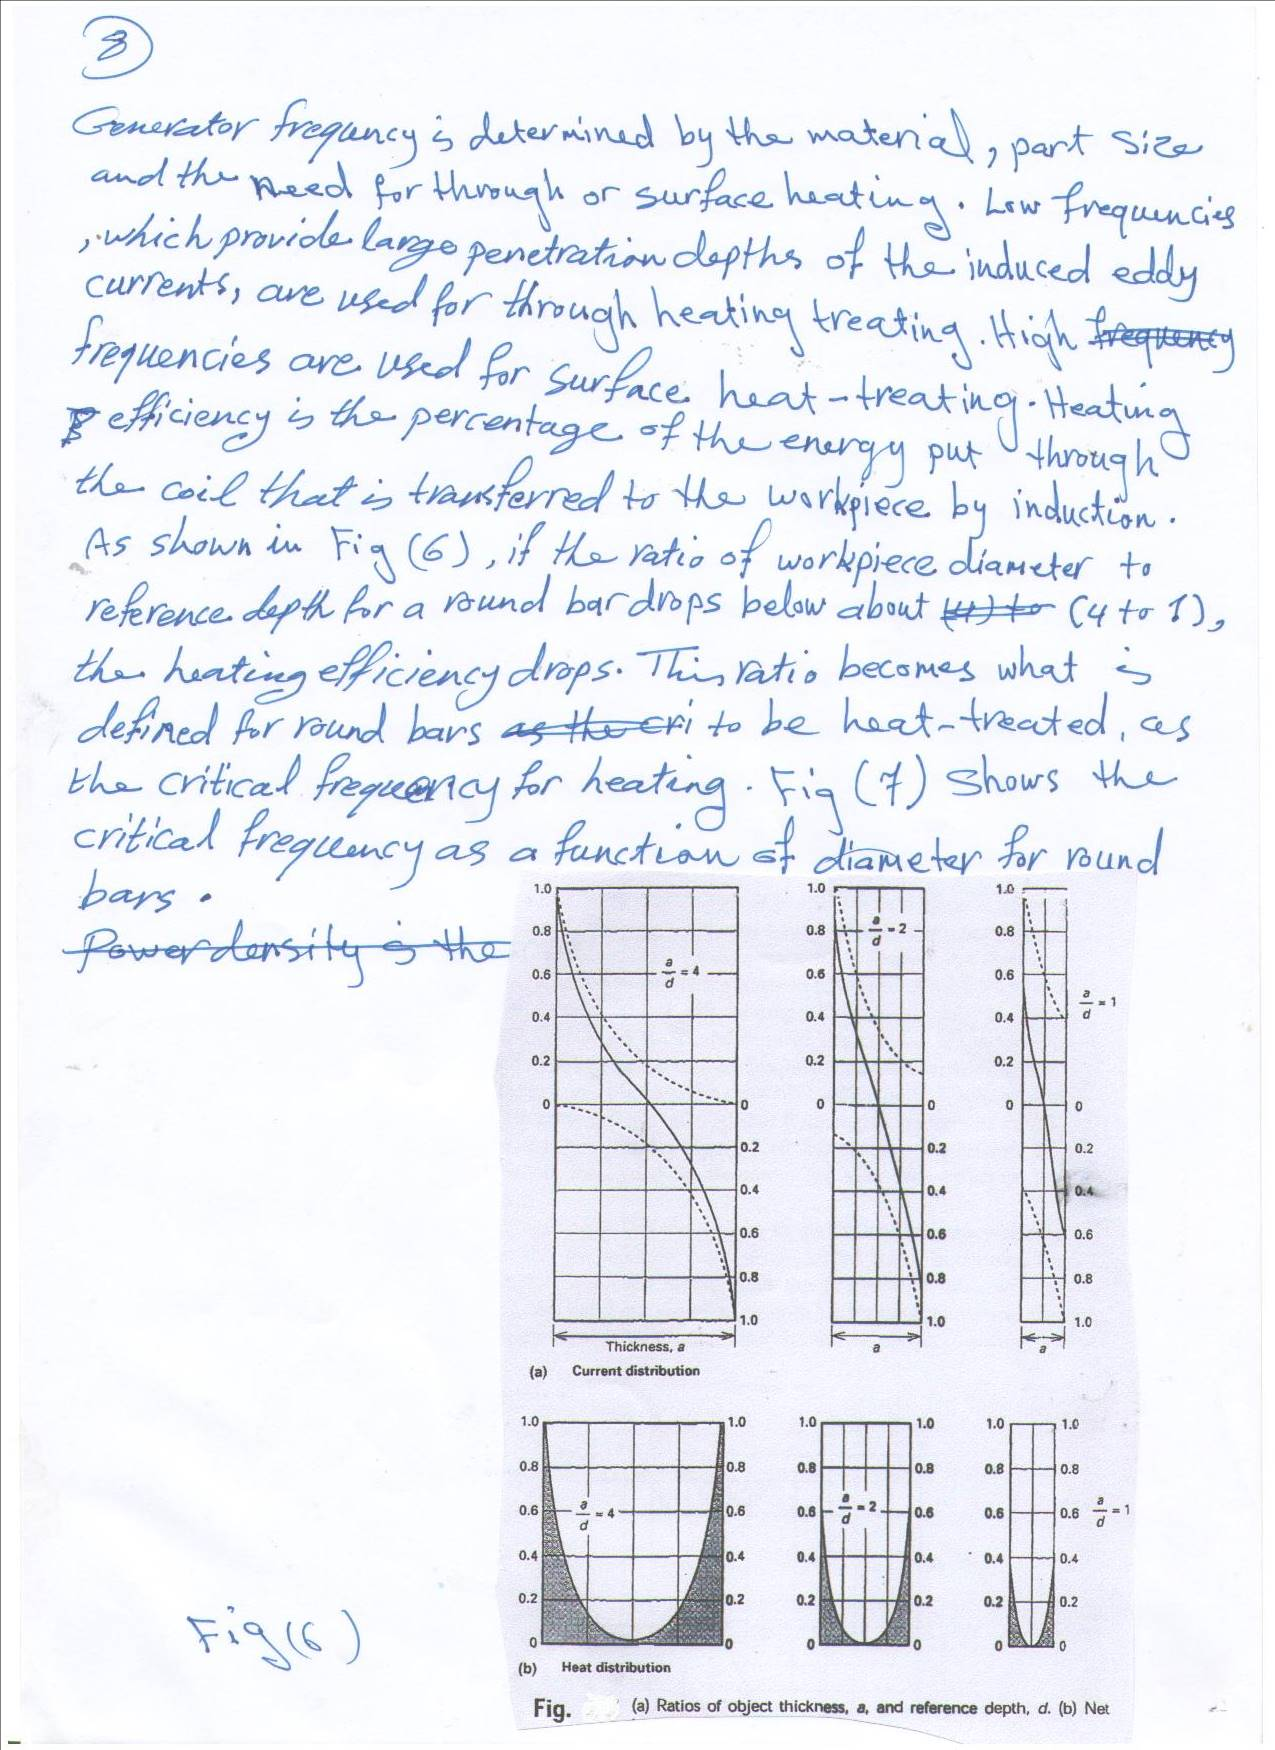 8
Generator frequency is determined by the material, part size
and the need for through or surface heating. Low frequencies
, which provide large penetration depths of the induced eddy
currents, are used for through heating treating. High frequency
frequencies are used for surface heat-treating. Heating
efficiency is the percentage of the energy put through
the coil that is transferred to the workpiece by induction.
As shown in Fig (6), if the ratio of workpiece diameter to
reference depth for a round bar drops below about (4 to 1),
the heating efficiency drops. This ratio becomes what is
defined for round bars as the cri to be heat-treated, as
the critical frequency for heating. Fig (7) shows the
critical frequency as a function of diameter for round
bars.
Power density is the
1.0 1.0 1.0
0.8 0.8 a/d = 2 0.8
0.6 a/d = 4 0.6 0.6
0.4 0.4 0.4 a/d = 1
0.2 0.2 0.2
0 0 0 0 0 0
0.2 0.2 0.2
0.4 0.4 0.4
0.6 0.6 0.6
0.8 0.8 0.8
1.0 1.0 1.0
Thickness, a a a
(a) Current distribution
1.0 1.0 1.0 1.0 1.0 1.0
0.8 0.8 0.8 0.8 0.8 0.8
0.6 a/d = 4 0.6 0.6 a/d = 2 0.6 0.6 0.6 a/d = 1
0.4 0.4 0.4 0.4 0.4 0.4
0.2 0.2 0.2 0.2 0.2 0.2
0 0 0 0 0 0
(b) Heat distribution
Fig. (a) Ratios of object thickness, a, and reference depth, d. (b) Net
Fig (6)